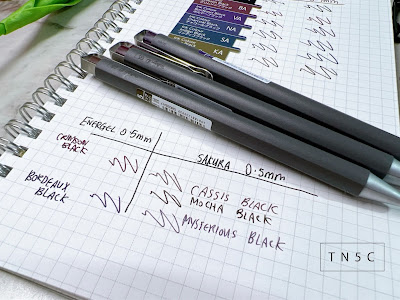 BA
VA
NA
SA
KA
ENERGEL 0.5mm
CRIMSON
BLACK
BORDEAUX
BLACK
SAKURA 0.5mm
CASSIS BLACK
MOCHA BLACK
MYSTERIOUS BLACK
TN5C